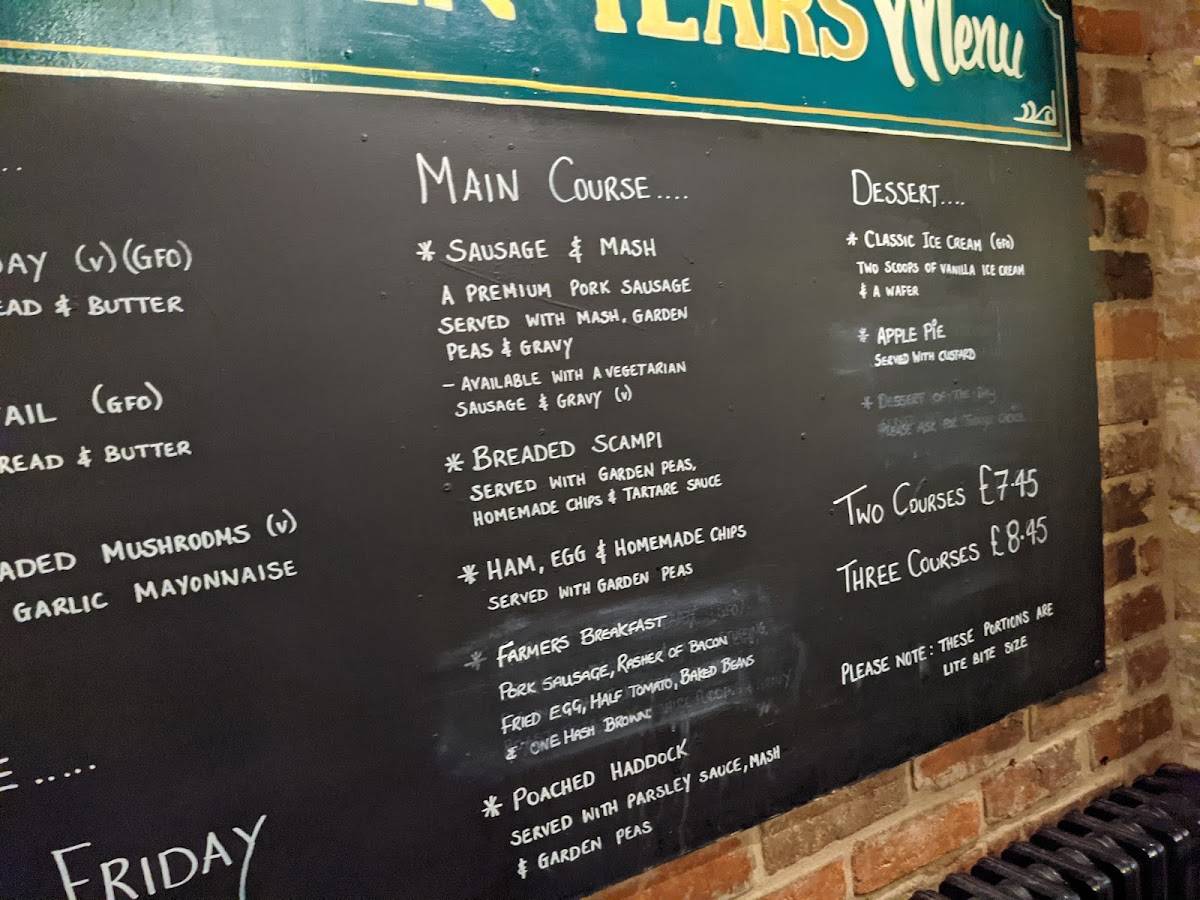 YEARS Menu
(V) (GFO)
& BUTTER
(GFO)
& BUTTER
MUSHROOMS (V)
GARLIC MAYONNAISE
FRIDAY
MAIN COURSE....
* SAUSAGE & MASH
A PREMIUM PORK SAUSAGE
SERVED WITH MASH, GARDEN
PEAS & GRAVY
- AVAILABLE WITH A VEGETARIAN
SAUSAGE & GRAVY (V)
* BREADED SCAMPI
SERVED WITH GARDEN PEAS,
HOMEMADE CHIPS & TARTARE SAUCE
* HAM, EGG & HOMEMADE CHIPS
SERVED WITH GARDEN PEAS
* FARMERS BREAKFAST
PORK SAUSAGE, RASHER OF BACON
FRIED EGG, HALF TOMATO, BAKED BEANS
& ONE HASH BROWN
* POACHED HADDOCK
SERVED WITH PARSLEY SAUCE, MASH
& GARDEN PEAS
DESSERT....
* CLASSIC ICE CREAM (GFO)
TWO SCOOPS OF VANILLA ICE CREAM
& A WAFER
* APPLE PIE
SERVED WITH CUSTARD
* DESSERT OF THE DAY
PLEASE ASK FOR TODAYS CHOICE
TWO COURSES £7.45
THREE COURSES £8.45
PLEASE NOTE: THESE PORTIONS ARE
LITE BITE SIZE